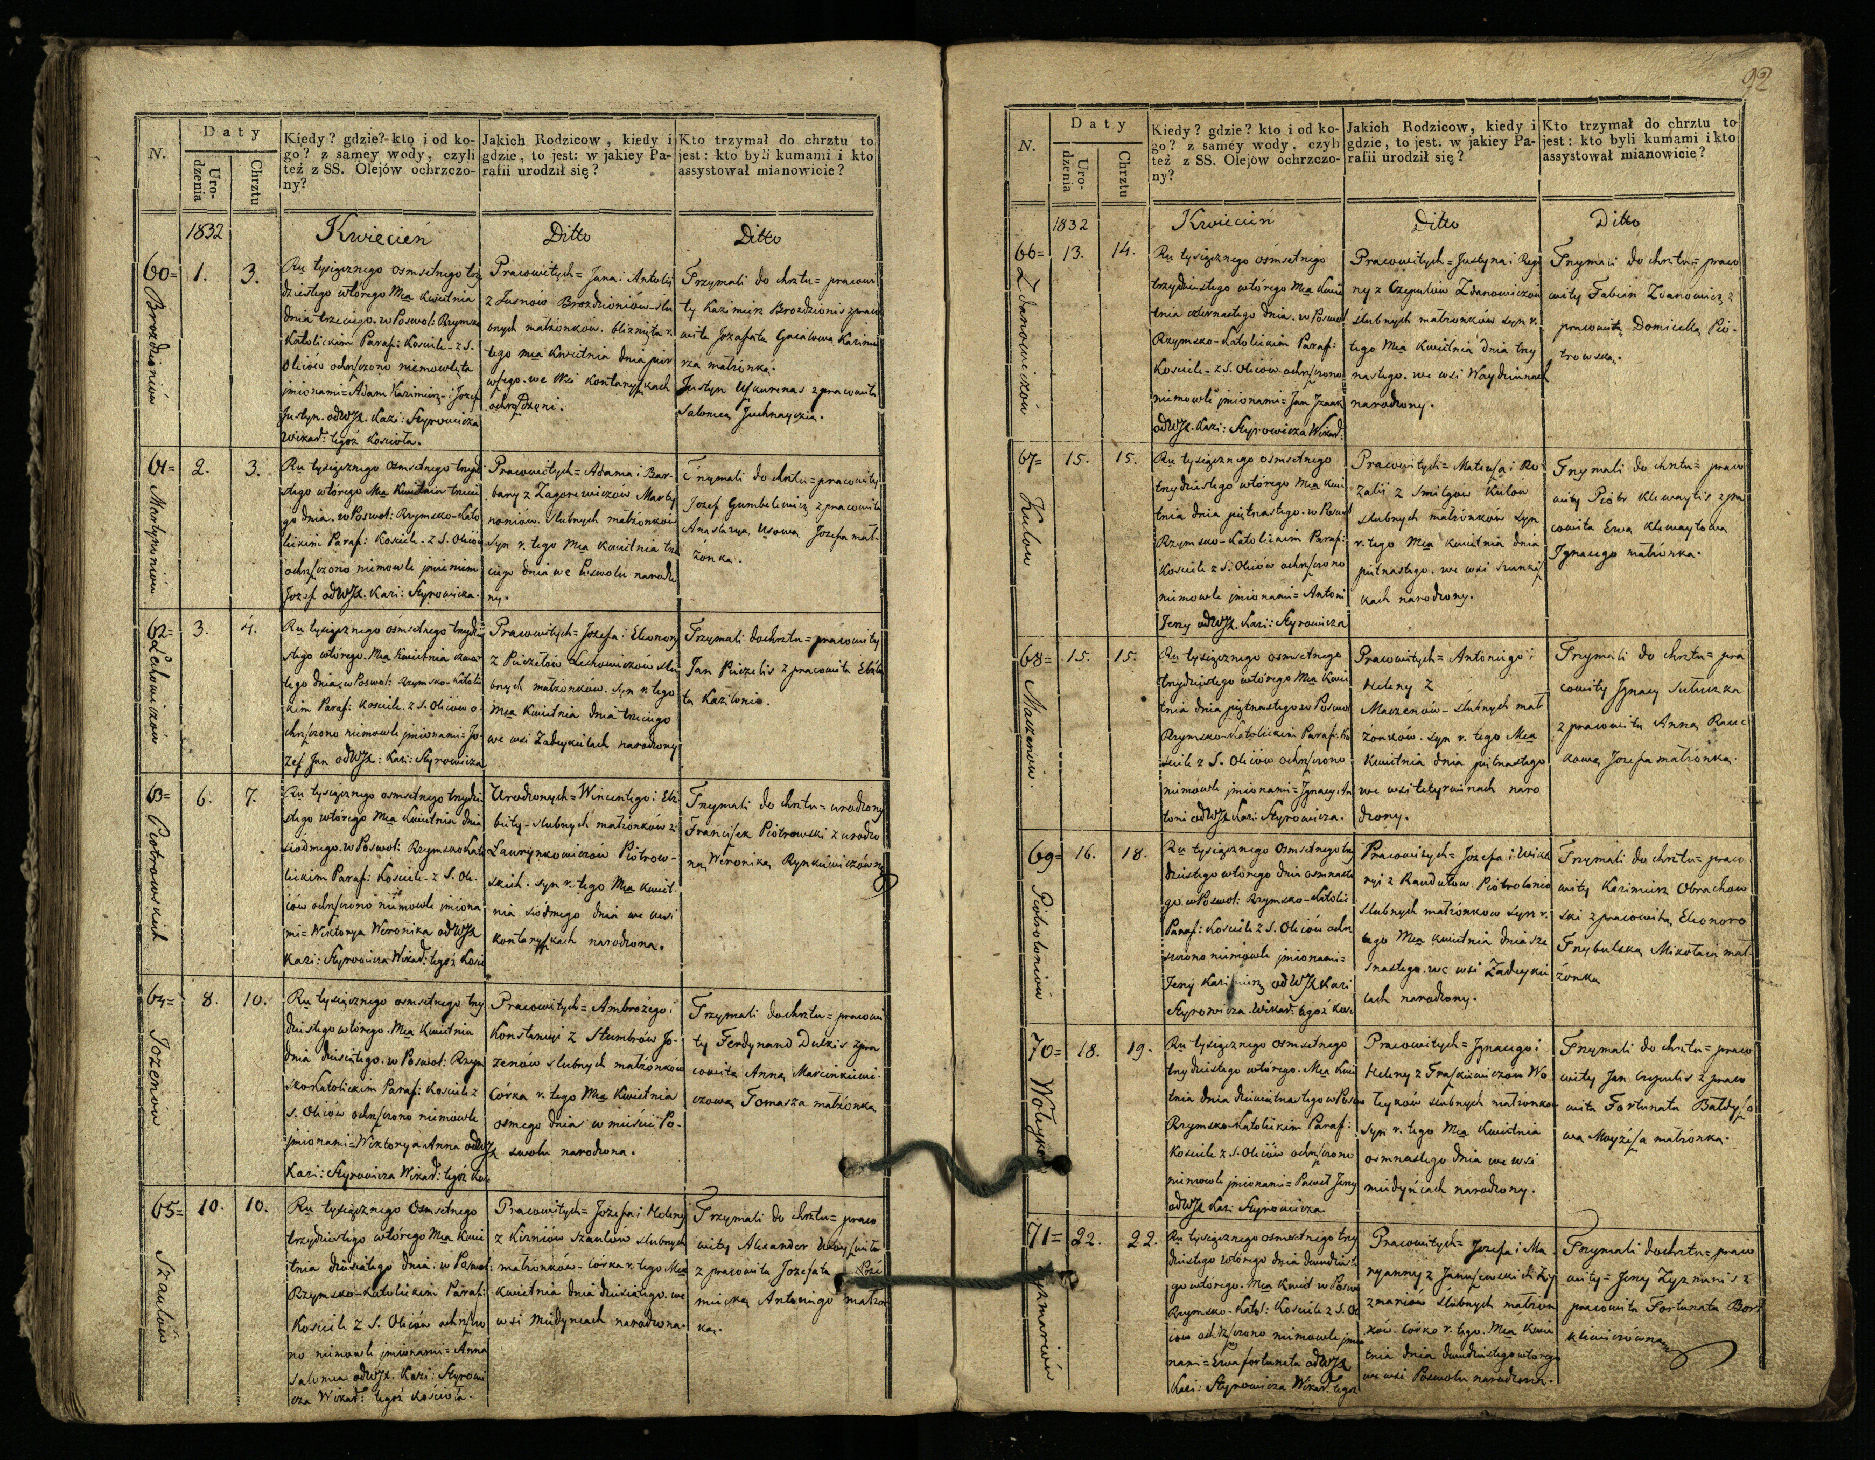 N.
Daty
Uro-
dzenia
Chrztu
Kiedy? gdzie? kto i od ko-
go? z samey wody, czyli
też z SS. Olejów ochrzczo-
ny?
Jakich Rodzicow, kiedy i
gdzie, to jest: w jakiey Pa-
rafii urodził się?
Kto trzymał do chrztu to
jest: kto byli kumami i kto
assystował mianowicie?
1832
Kwiecień
Ditto
Ditto
60=
1.
3.
Ru tysiącznego osmsetnego trzy
dziestego wtórego Mca Kwietnia
dnia trzeciego. w Poswol: Rzymsko
Katolickim Paraf: Kosciele - z S.
Oliiów ochrzczono niemowlęta
jmionami = Adam Kazimierz - i Jozef
Justyn. od WJX. Kazi: Styrowicza
Wikar: tegoż Koscioła.
Pracowitych = Jana i Antolij
z Brozdioniów - slu
bnych małżonków. bliznięta r.
tego mca Kwietnia dnia pier
wszego. we Wsi Kontaryszkach
Trzymali do chrztu = pracowi
ty Kazimierz Brozdionis z praco
wita Jozefata Kazimie
rza małżonką.
Justyn z pracowita
Salomeą
61=
2.
3.
Ru tysiącznego osmsetnego trzydzie
stego wtórego Mca Kwietnia trzecie
go dnia. w Poswol: Rzymsko - Kato
lickim Paraf: Kosciele. z S. Oliiów
ochrzczono niemowle jmieniem
Jozef od WJX. Kazi: Styrowicza.
Pracowitych = Adama i Bar
bary z Zagorewiczów Marty
noniów. slubnych małżonków
syn r. tego Mca Kwietnia trze
ciego dnia we Poswolu narodzo
ny.
Trzymali do chrztu = pracowity
Jozef Gumbelewicz z pracowita
Anastazyą Usową Jozefa mał
żonką.
62=
Lechowiczów
3.
4.
Ru tysiącznego osmsetnego trzydzie
stego wtorego. Mca Kwietnia czwar
tego dnia. w Poswol: Rzymsko - Katolic
kim Paraf: Kosciele. z S. Oliiów o-
chrzczono niemowle jmionami = Jo-
zef Jan od WJX: Kazi: Styrowicza
Pracowitych = Jozefa i Eleonory
z Puzelów Lechowiczów slu
bnych małżonków. Syn r. tego
Mca Kwietnia dnia trzeciego
we wsi Zadeykielach narodzony
Trzymali do chrztu = pracowity
Jan Puzelis z pracowita Elżbie
ta
63=
Piotrowskich
6.
7.
Ru tysiącznego osmsetnego trzydzie
stego wtórego Mca Kwietnia dnia
siodmego. w Poswol: Rzymsko Kato
lickim Paraf: Kosciele - z S. Oli-
iów ochrzczono niemowle jmiona
mi = Wiktorya Weronika od WJX
Kazi: Styrowicza Wikar: tegoż Kosc
Urodzonych = Wincentego i Elż
biety - slubnych małżonków z
Laurynkowiczów Piotrow-
skich. syn r. tego Mca Kwiet-
nia siodmego dnia we wsi
Kontaryszkach narodzona.
Trzymali do chrztu = urodzony
Franciszek Piotrowski z urodzo
ną Weroniką Rynkiewiczówną
64=
Jozenow
8.
10.
Ru tysiącznego osmsetnego trzy
dziestego wtórego. Mca Kwietnia
dnia dziesiątego. w Poswol: Rzym
sko Katolickim Paraf: Kosciele z
S. Oliiów ochrzczono niemowle
jmionami = Wiktorya Anna od WJX
Kazi: Styrowicza Wikar: tegoż Kosc
Pracowitych = Ambrożego i
Konstancyi z Stumbrów Jo-
zenów slubnych małżonków
Córka r. tego Mca Kwietnia
osmego dnia w mieście Po-
swolu narodzona.
Trzymali do chrztu = pracowi
ty Ferdynand z pra
cowita Anną Marcinkiewi-
czową Tomasza małżonką
65=
Szaulów
10.
10.
Ru tysiącznego osmsetnego
trzydziestego wtórego Mca Kwie
tnia dziesiątego dnia: w Poswol:
Rzymsko - Katolickim Paraf:
Kosciele z S. Oliiów ochrzczo
no niemowle jmionami = Anna
Salomea od WJX. Kazi: Styrowi
cza Wikar: tegoż Koscioła.
Pracowitych = Jozefa i Heleny
z Szaulów slubnych
małżonków - córka r. tego Mca
Kwietnia dnia dziesiątego. we
wsi Mudyniach narodzona.
Trzymali do chrztu = praco
wity Alexander
z pracowita Jozefata
Antoniego małżon
ką.
92
N.
Daty
Uro-
dzenia
Chrztu
Kiedy? gdzie? kto i od ko-
go? z samey wody, czyli
też z SS. Olejów ochrzczo-
ny?
Jakich Rodzicow, kiedy i
gdzie, to jest. w jakiey Pa-
rafii urodził się?
Kto trzymał do chrztu to
jest: kto byli kumami i kto
assystował mianowicie?
1832
Kwiecień
Ditto
Ditto
66=
Zdanowiczów
13.
14.
Ru tysiącznego osmsetnego
trzydziestego wtórego Mca Kwie
tnia czternastego dnia. w Poswol
Rzymsko - Katolickim Paraf:
Kosciele - z S. Oliiów ochrzczono
niemowle jmionami = Jan Jzaak
od WJX. Kazi: Styrowicza Wikar:
Pracowitych = Justyna i Regi
ny z Czepulów Zdanowiczów
slubnych małżonków syn r.
tego Mca Kwietnia dnia trzy
nastego. we wsi Woydziunach
narodzony.
Trzymali do chrztu = praco
wity Fabian Zdanowicz z
pracowitą Domicellą Pio-
trowską.
67=
Kulow
15.
15.
Ru tysiącznego osmsetnego
trzydziestego wtórego Mca Kwie
tnia dnia piętnastego. w Poswol
Rzymsko - Katolickim Paraf:
Kosciele z S. Oliiów ochrzczono
niemowle jmionami = Antoni
Jerzy od WJX. Kazi: Styrowicza
Pracowitych = Mateusza i Ro
zalij z Smilgów Kulow
slubnych małżonków syn
r. tego Mca Kwietnia dnia
piętnastego. we wsi
kach narodzony.
Trzymali do chrztu = praco
wity Piotr Klewaytis z pra
cowita Ewa Klewaytowa
Jgnacego małżonka.
68=
Maczenow.
15.
15.
Ru tysiącznego osmsetnego
trzydziestego wtórego Mca Kwie
tnia dnia piętnastego w Poswol
Rzymsko - Katolickim Paraf: Ko
sciele z S. Oliiów ochrzczono
niemowle jmionami = Jgnacy An
toni od WJX. Kazi: Styrowicza.
Pracowitych = Antoniego i
Heleny z
Maczenów - slubnych mał
żonkow. syn r. tego Mca
Kwietnia dnia piętnastego
we wsi naro
dzony.
Trzymali do chrztu = pra
cowity Jgnacy
z pracowita Anną
kową Jozefa małżonką.
69=
Piotroloniow
16.
18.
Ru tysiącznego osmsetnego trzy
dziestego wtórego dnia osmnaste
go. w Poswol: Rzymsko - Katolic
Paraf: Kosciele z S. Oliiów ochrz
czono niemowle jmionami =
Jerzy Kazimierz od WJX Kazi
Styrowicza. Wikar: tegoż Kosc
Pracowitych = Jozefa i Wikto
ryi z Randułow Piotrolonio
slubnych małżonkow syn r.
tego Mca Kwietnia dnia sze
snastego. we wsi Zadeykie
lach narodzony.
Trzymali do chrztu = praco
wity Kazimierz Obrachow
ski z pracowitą Eleonorą
Trybulską Mikołaia mał-
żonką
70=
18.
19.
Ru tysiącznego osmsetnego
trzydziestego wtórego. Mca Kwie
tnia dnia dziewiętnastego w Poswo
Rzymsko - Katolickim Paraf:
Kosciele z S. Oliiów ochrzczono
niemowle jmionami = Paweł Jerzy
od WJX Kazi Styrowicza
Pracowitych = Jgnacego i
Heleny z Wo
łeyków slubnych małżonkow
syn r. tego Mca Kwietnia
osmnastego dnia we wsi
Mudyńcach narodzony.
Trzymali do chrztu = praco
wity Jan Czepulis z praco
wita Fortunata
wa Moyżesza małżonką.
71=
22.
22.
Ru tysiącznego osmsetnego trzy
dziestego wtórego dnia dwudzieste
go wtorego. Mca Kwiet w Poswol
Rzymsko - Katol: Kosciele z S. Ol
iow ochrzczono niemowle jmio
nami = Ewa fortunata od WJX
Kazi: Styrowicza Wikar: tegoż
Pracowitych = Jozefa i Ma
ryanny z
slubnych małżon
ków. córka r. tego. Mca Kwie
tnia dnia dwudziestego wtorego
we wsi Poswolu narodzona.
Trzymali do chrztu = praco
wity = Jerzy Zyzmanis z
pracowita Fortunata